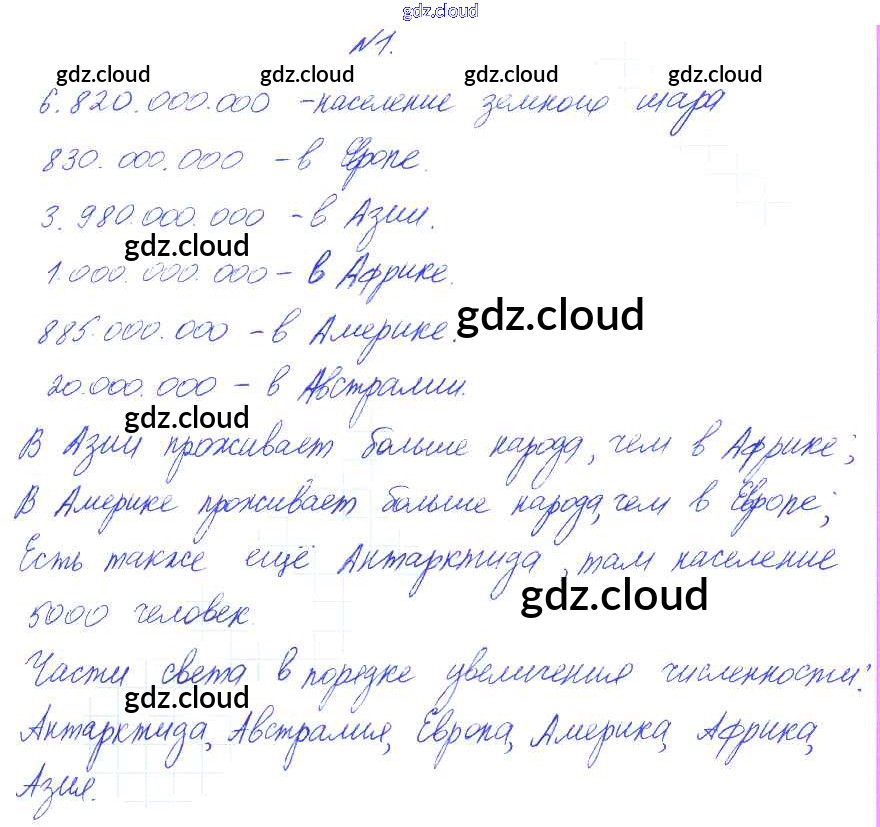 gdz.cloud
№1.
gdz.cloud gdz.cloud gdz.cloud gdz.cloud
6.820.000.000 - население земного шара
830.000.000 - в Европе.
3.980.000.000 - в Азии.
gdz.cloud
1.000.000.000 - в Африке.
gdz.cloud
885.000.000 - в Америке.
20.000.000 - в Австралии.
gdz.cloud
В Азии проживает больше народа, чем в Африке;
В Америке проживает больше народа, чем в Европе;
Есть также ещё Антарктида, там население
gdz.cloud
5000 человек.
Части света в порядке увеличения численности:
gdz.cloud
Антарктида, Австралия, Европа, Америка, Африка,
Азия.